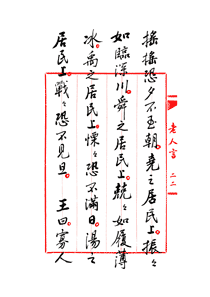 搖搖恐夕不至朝堯之居民上振々
如臨深川舜之居民上兢々如履薄
冰禹之居民上慄々恐不滿日湯之
居民上戰々恐不見旦 王曰寡人
老人言 二二